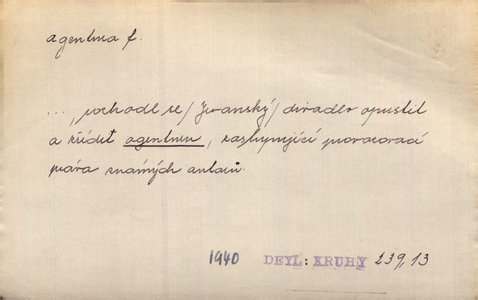 agentura f.
..., rozhodl se /Jeřanský/ divadlo opustit
a zřídit agenturu, zastupující provozovací
práva známých autorů.
1940 DEYL: KRUHY 239,13